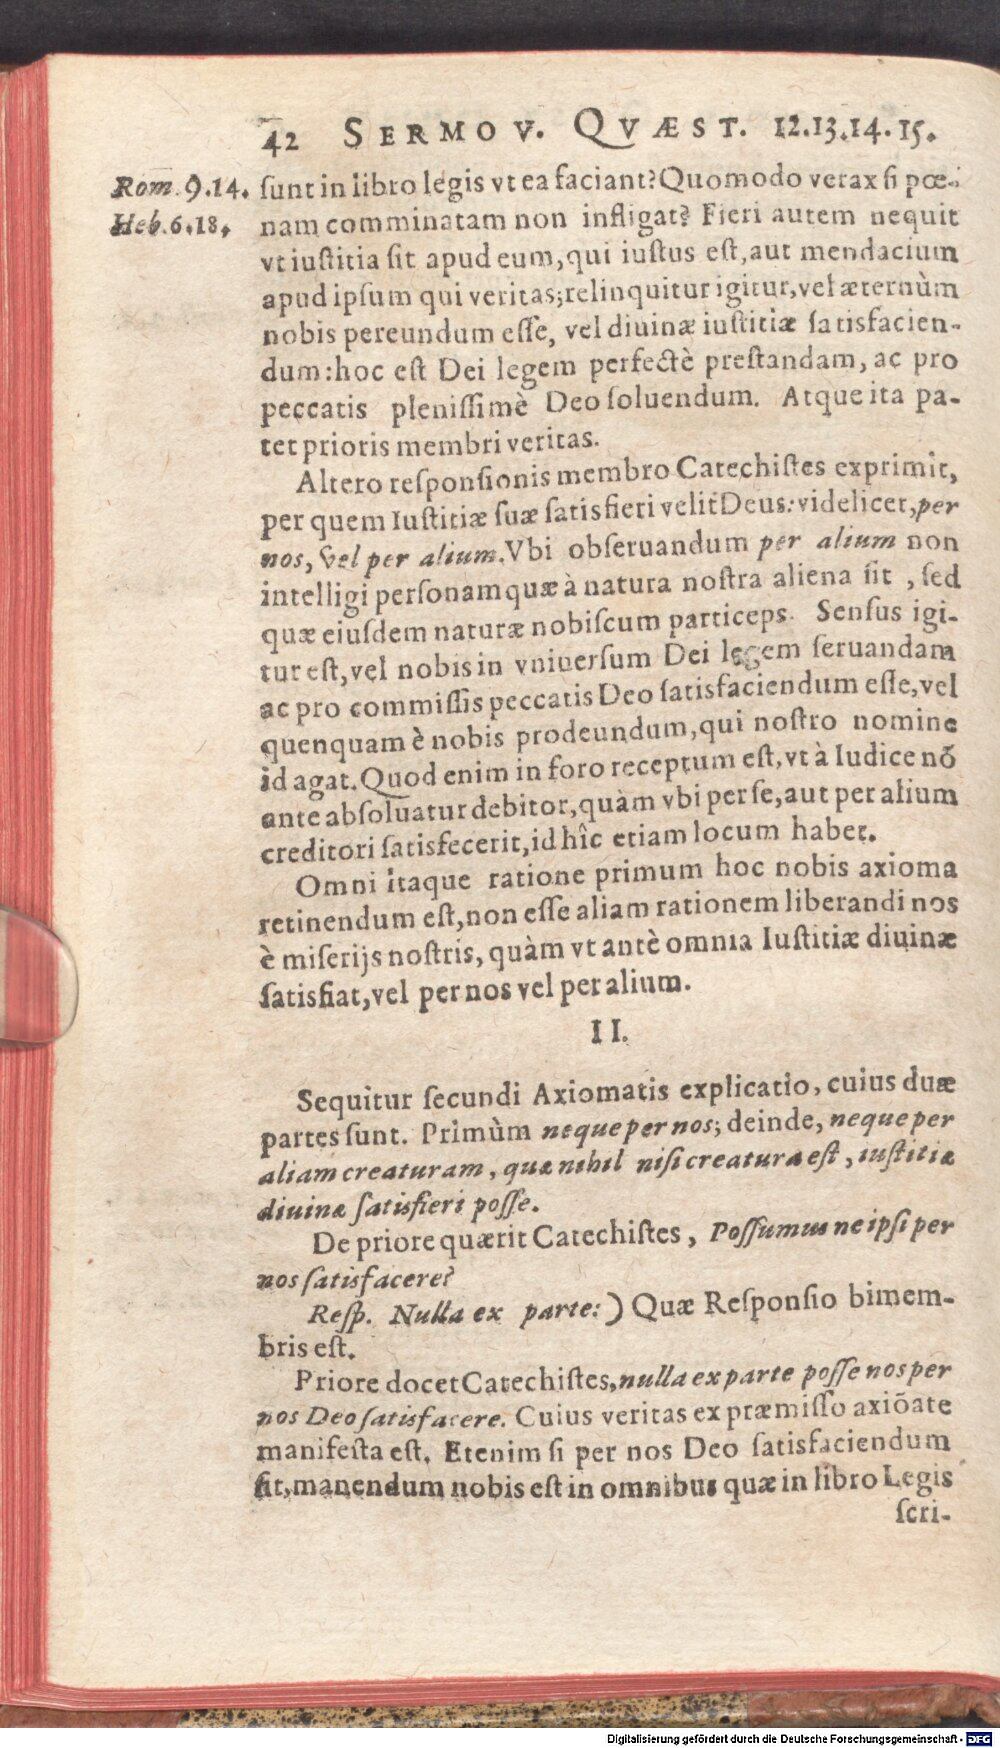 42 SERMO V. QVÆST. 12.13.14.15.
Rom. 9.14.
Heb. 6.18.
ſunt in libro legis vt ea faciant? Quomodo verax ſi pœ-
nam comminatam non infligat? Fieri autem nequit
vt iuſtitia ſit apud eum, qui iuſtus eſt, aut mendacium
apud ipſum qui veritas; relinquitur igitur, vel æternùm
nobis pereundum eſſe, vel diuinæ iuſtitiæ ſatisfacien-
dum: hoc eſt Dei legem perfectè preſtandam, ac pro
peccatis pleniſſimè Deo ſoluendum. Atque ita pa-
tet prioris membri veritas.
Altero reſponſionis membro Catechiſtes exprimit,
per quem Iuſtitiæ ſuæ ſatisfieri velit Deus: videlicet, per
nos, vel per alium. Vbi obſeruandum per alium non
intelligi perſonam quæ à natura noſtra aliena ſit, ſed
quæ eiuſdem naturæ nobiſcum particeps. Senſus igi-
tur eſt, vel nobis in vniuerſum Dei legem ſeruandam
ac pro commiſſis peccatis Deo ſatisfaciendum eſſe, vel
quenquam è nobis prodeundum, qui noſtro nomine
id agat. Quod enim in foro receptum eſt, vt à Iudice nō
ante abſoluatur debitor, quàm vbi per ſe, aut per alium
creditori ſatisfecerit, id hîc etiam locum habet.
Omni itaque ratione primum hoc nobis axioma
retinendum eſt, non eſſe aliam rationem liberandi nos
è miſerijs noſtris, quàm vt antè omnia Iuſtitiæ diuinæ
ſatisfiat, vel per nos vel per alium.
II.
Sequitur ſecundi Axiomatis explicatio, cuius duæ
partes ſunt. Primùm neque per nos; deinde, neque per
aliam creaturam, quæ nihil niſi creatura eſt, iuſtitiæ
diuinæ ſatisfieri poſſe.
De priore quærit Catechiſtes, Poſſumus ne ipſi per
nos ſatisfacere?
Reſp. Nulla ex parte:) Quæ Reſponſio bimem-
bris eſt.
Priore docet Catechiſtes, nulla ex parte poſſe nos per
nos Deo ſatisfacere. Cuius veritas ex præmiſſo axiōate
manifeſta eſt. Etenim ſi per nos Deo ſatisfaciendum
ſit, manendum nobis eſt in omnibus quæ in libro Legis
ſcri-
Digitalisierung gefördert durch die Deutsche Forschungsgemeinschaft - DFG